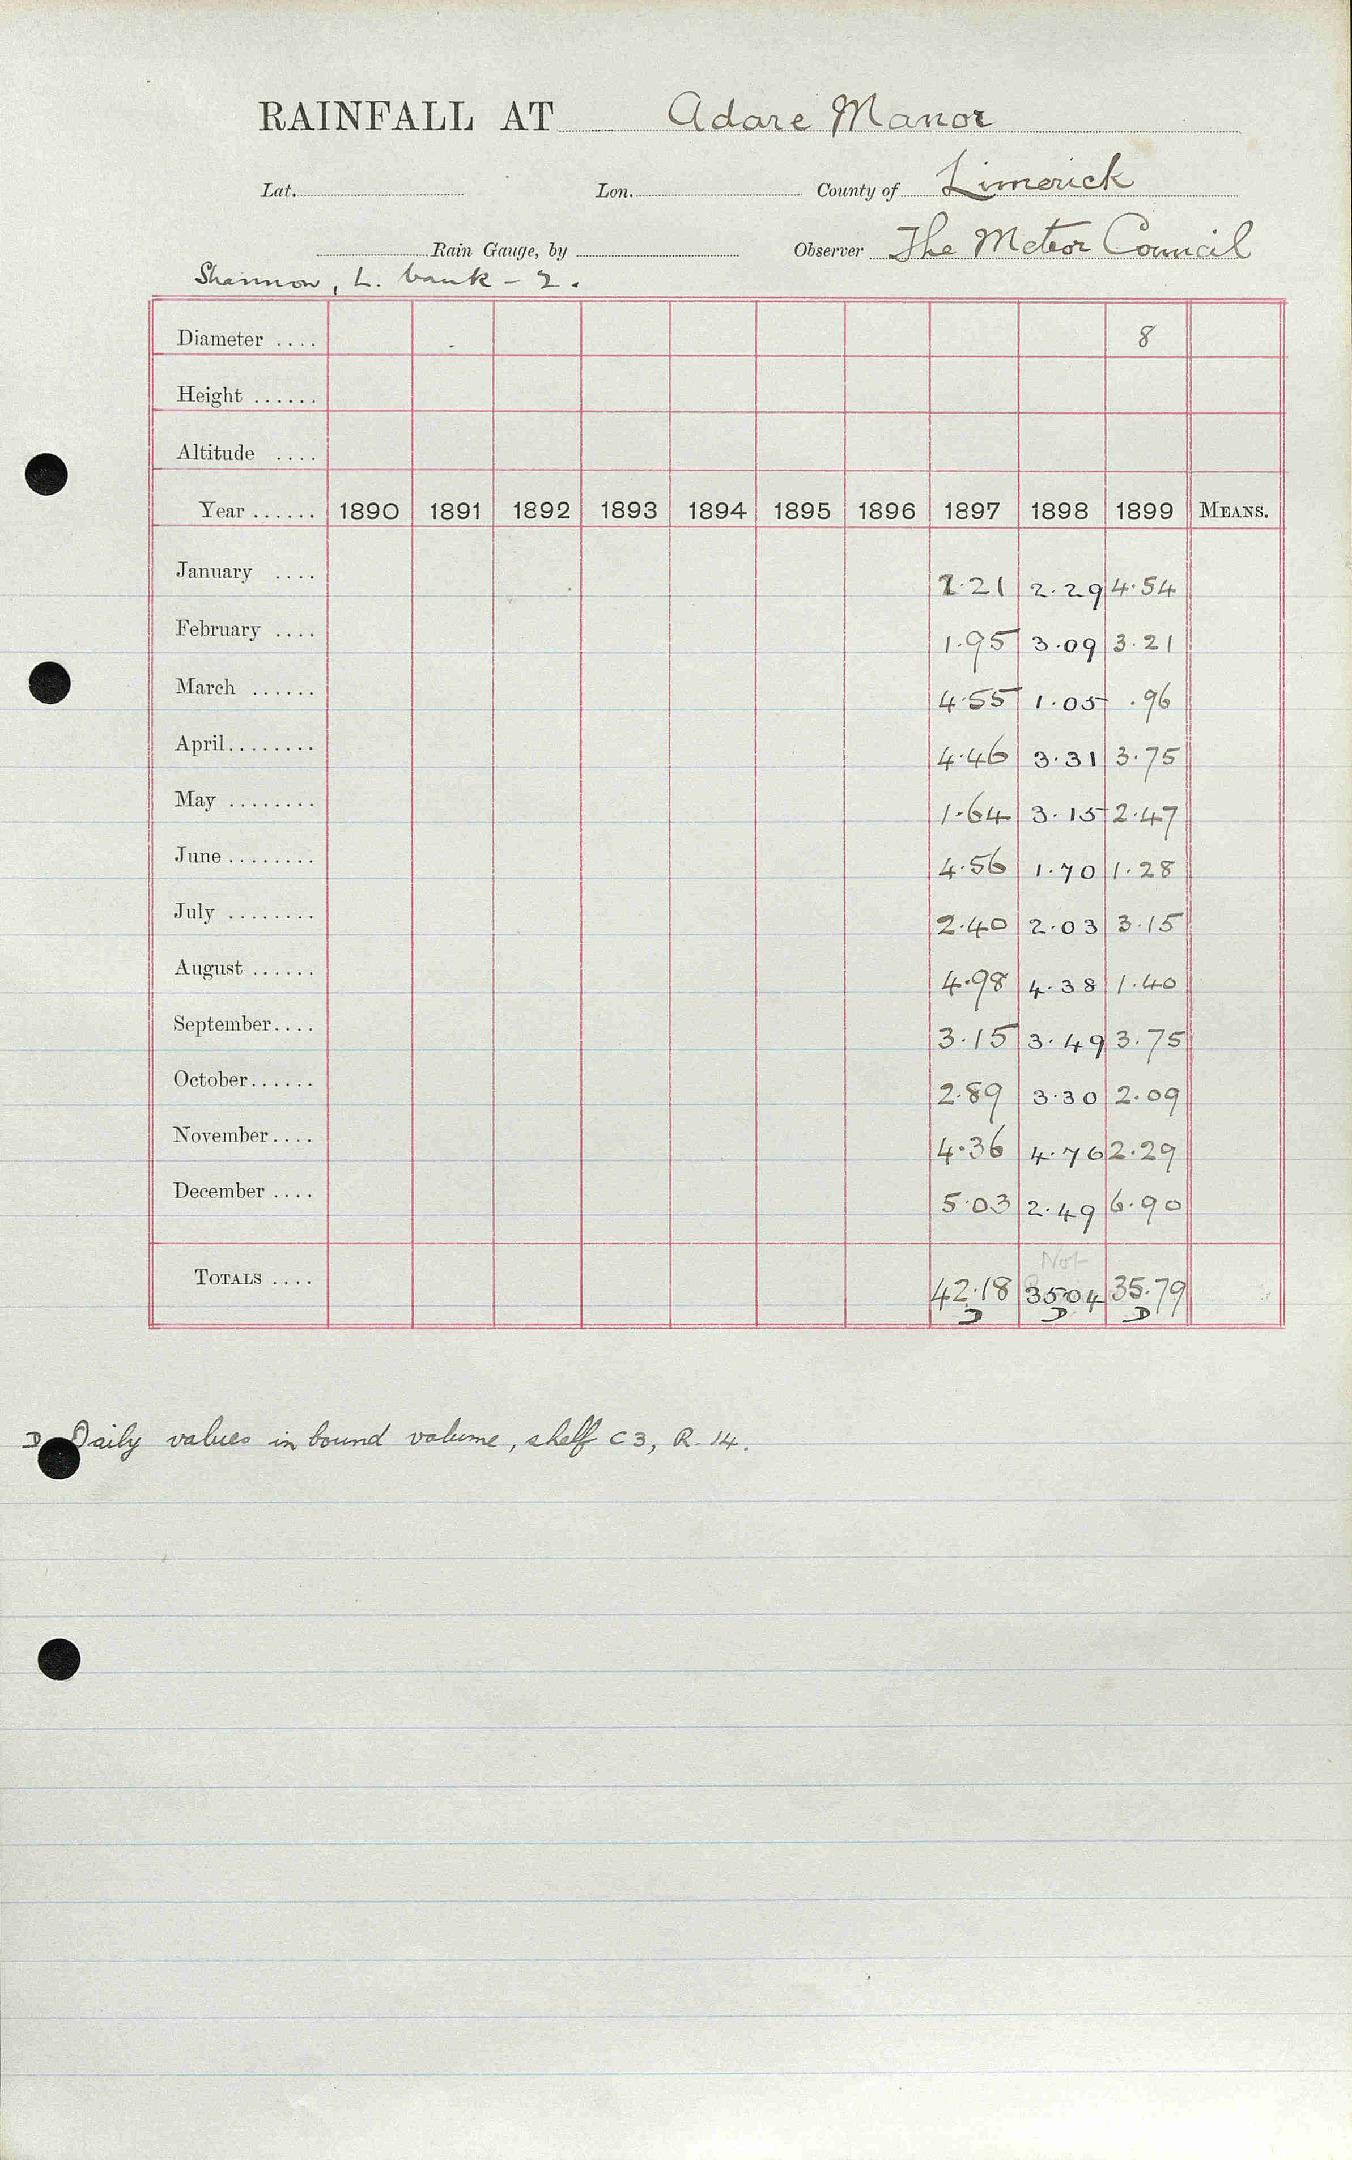 RAINFALL AT Adare Manor
Lat. Lon. County of Limerick
Rain Gauge, by Observer The Meteor Council
Shannon, L. bank - 2.
Diameter .... 8
Height ......
Altitude ....
Year ...... 1890 1891 1892 1893 1894 1895 1896 1897 1898 1899 MEANS.
January .... 2.21 2.29 4.54
February .... 1.95 3.09 3.21
March ...... 4.55 1.05 .96
April........ 4.46 3.31 3.75
May ........ 1.64 3.15 2.47
June ........ 4.56 1.70 1.28
July ........ 2.40 2.03 3.15
August ...... 4.98 4.38 1.40
September.... 3.15 3.49 3.75
October...... 2.89 3.30 2.09
November.... 4.36 4.76 2.29
December .... 5.03 2.49 6.90
Not
TOTALS .... 42.18 35.04 35.79
D D D
D Daily values in bound volume, shelf C3, R. 14.